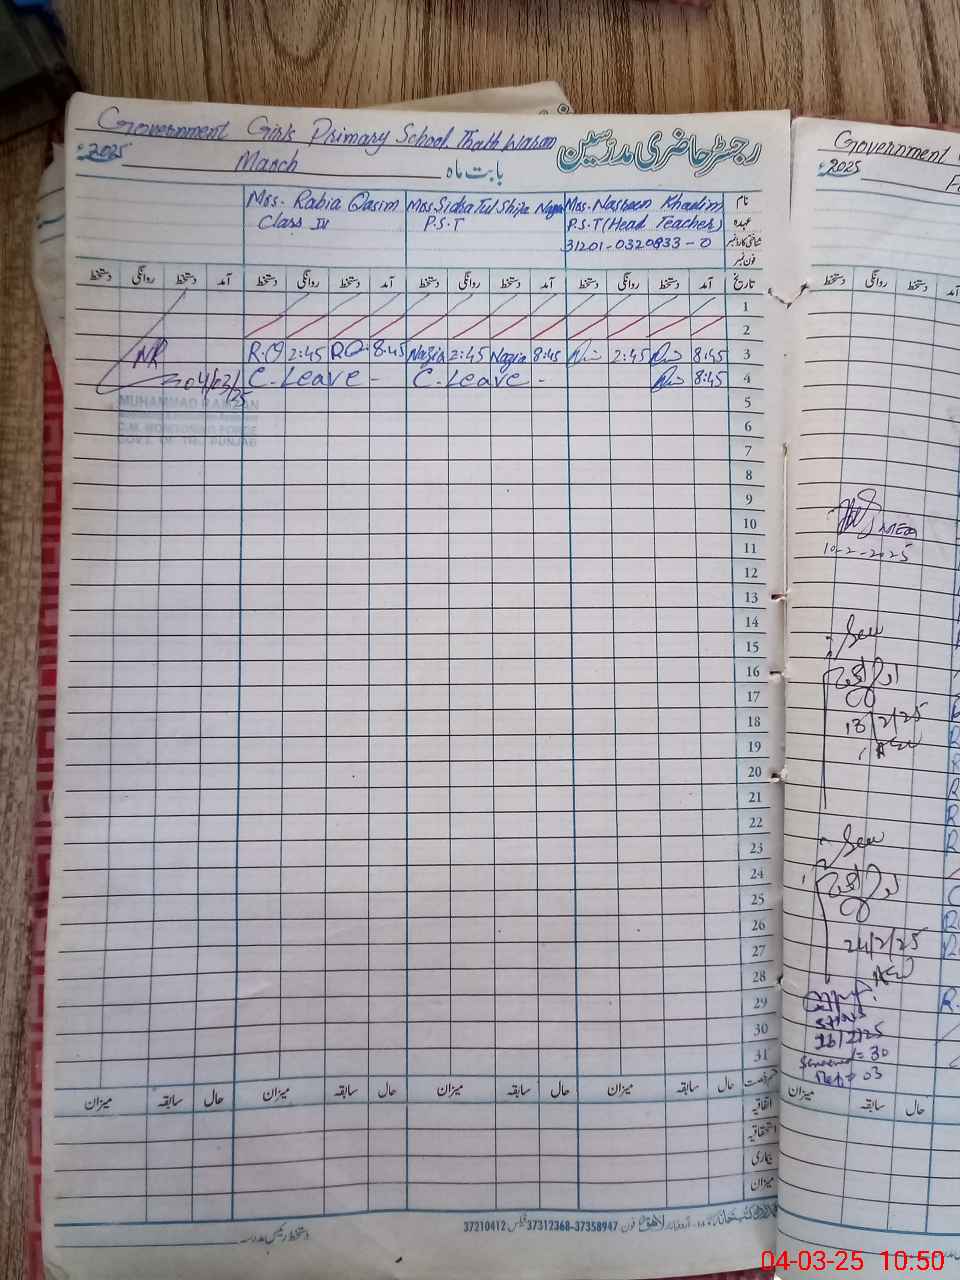 Government Girls Primary School Thatt Waran
رجسٹر حاضری مدرسین
2025ء
March
بابت ماہ
نام
Mrs. Nasreen Khadim
Miss Sidra Tul Shifa Nazia
Mrs. Rabia Qasim
عہدہ
P.S.T (Head Teacher)
P.S.T
Class IV
شناختی کارڈ نمبر
31201-0320833-0
فون نمبر
تاریخ آمد دستخط روانگی دستخط آمد دستخط روانگی دستخط آمد دستخط روانگی دستخط آمد دستخط روانگی دستخط
1
2
3 8:45 2:45 8:45 Nazia 2:45 Nazia 8:45 RQ 2:45 R.Q
4 8:45 C. Leave - C. Leave -
NR
04/03/25
MUHAMMAD RAMZAN
C.M. MONITORING FORCE
GOVT. OF THE PUNJAB
5
6
7
8
9
10
11
12
13
14
15
16
17
18
19
20
21
22
23
24
25
26
27
28
29
30
31
حال سابقہ میزان حال سابقہ میزان حال سابقہ میزان حال سابقہ میزان
اتفاقیہ
استحقاقیہ
بیماری
میزان
لاہور فون 37358947-37312368 فیکس 37210412
دستخط رئیس مدرسہ
Government
2025ء
دستخط روانگی دستخط
MEA
10-2-2025
Seen
13/2/25
AEO
Seen
24/2/25
AEO
26/2/25
Screened = 30
03
حال سابقہ میزان
04-03-25 10:50